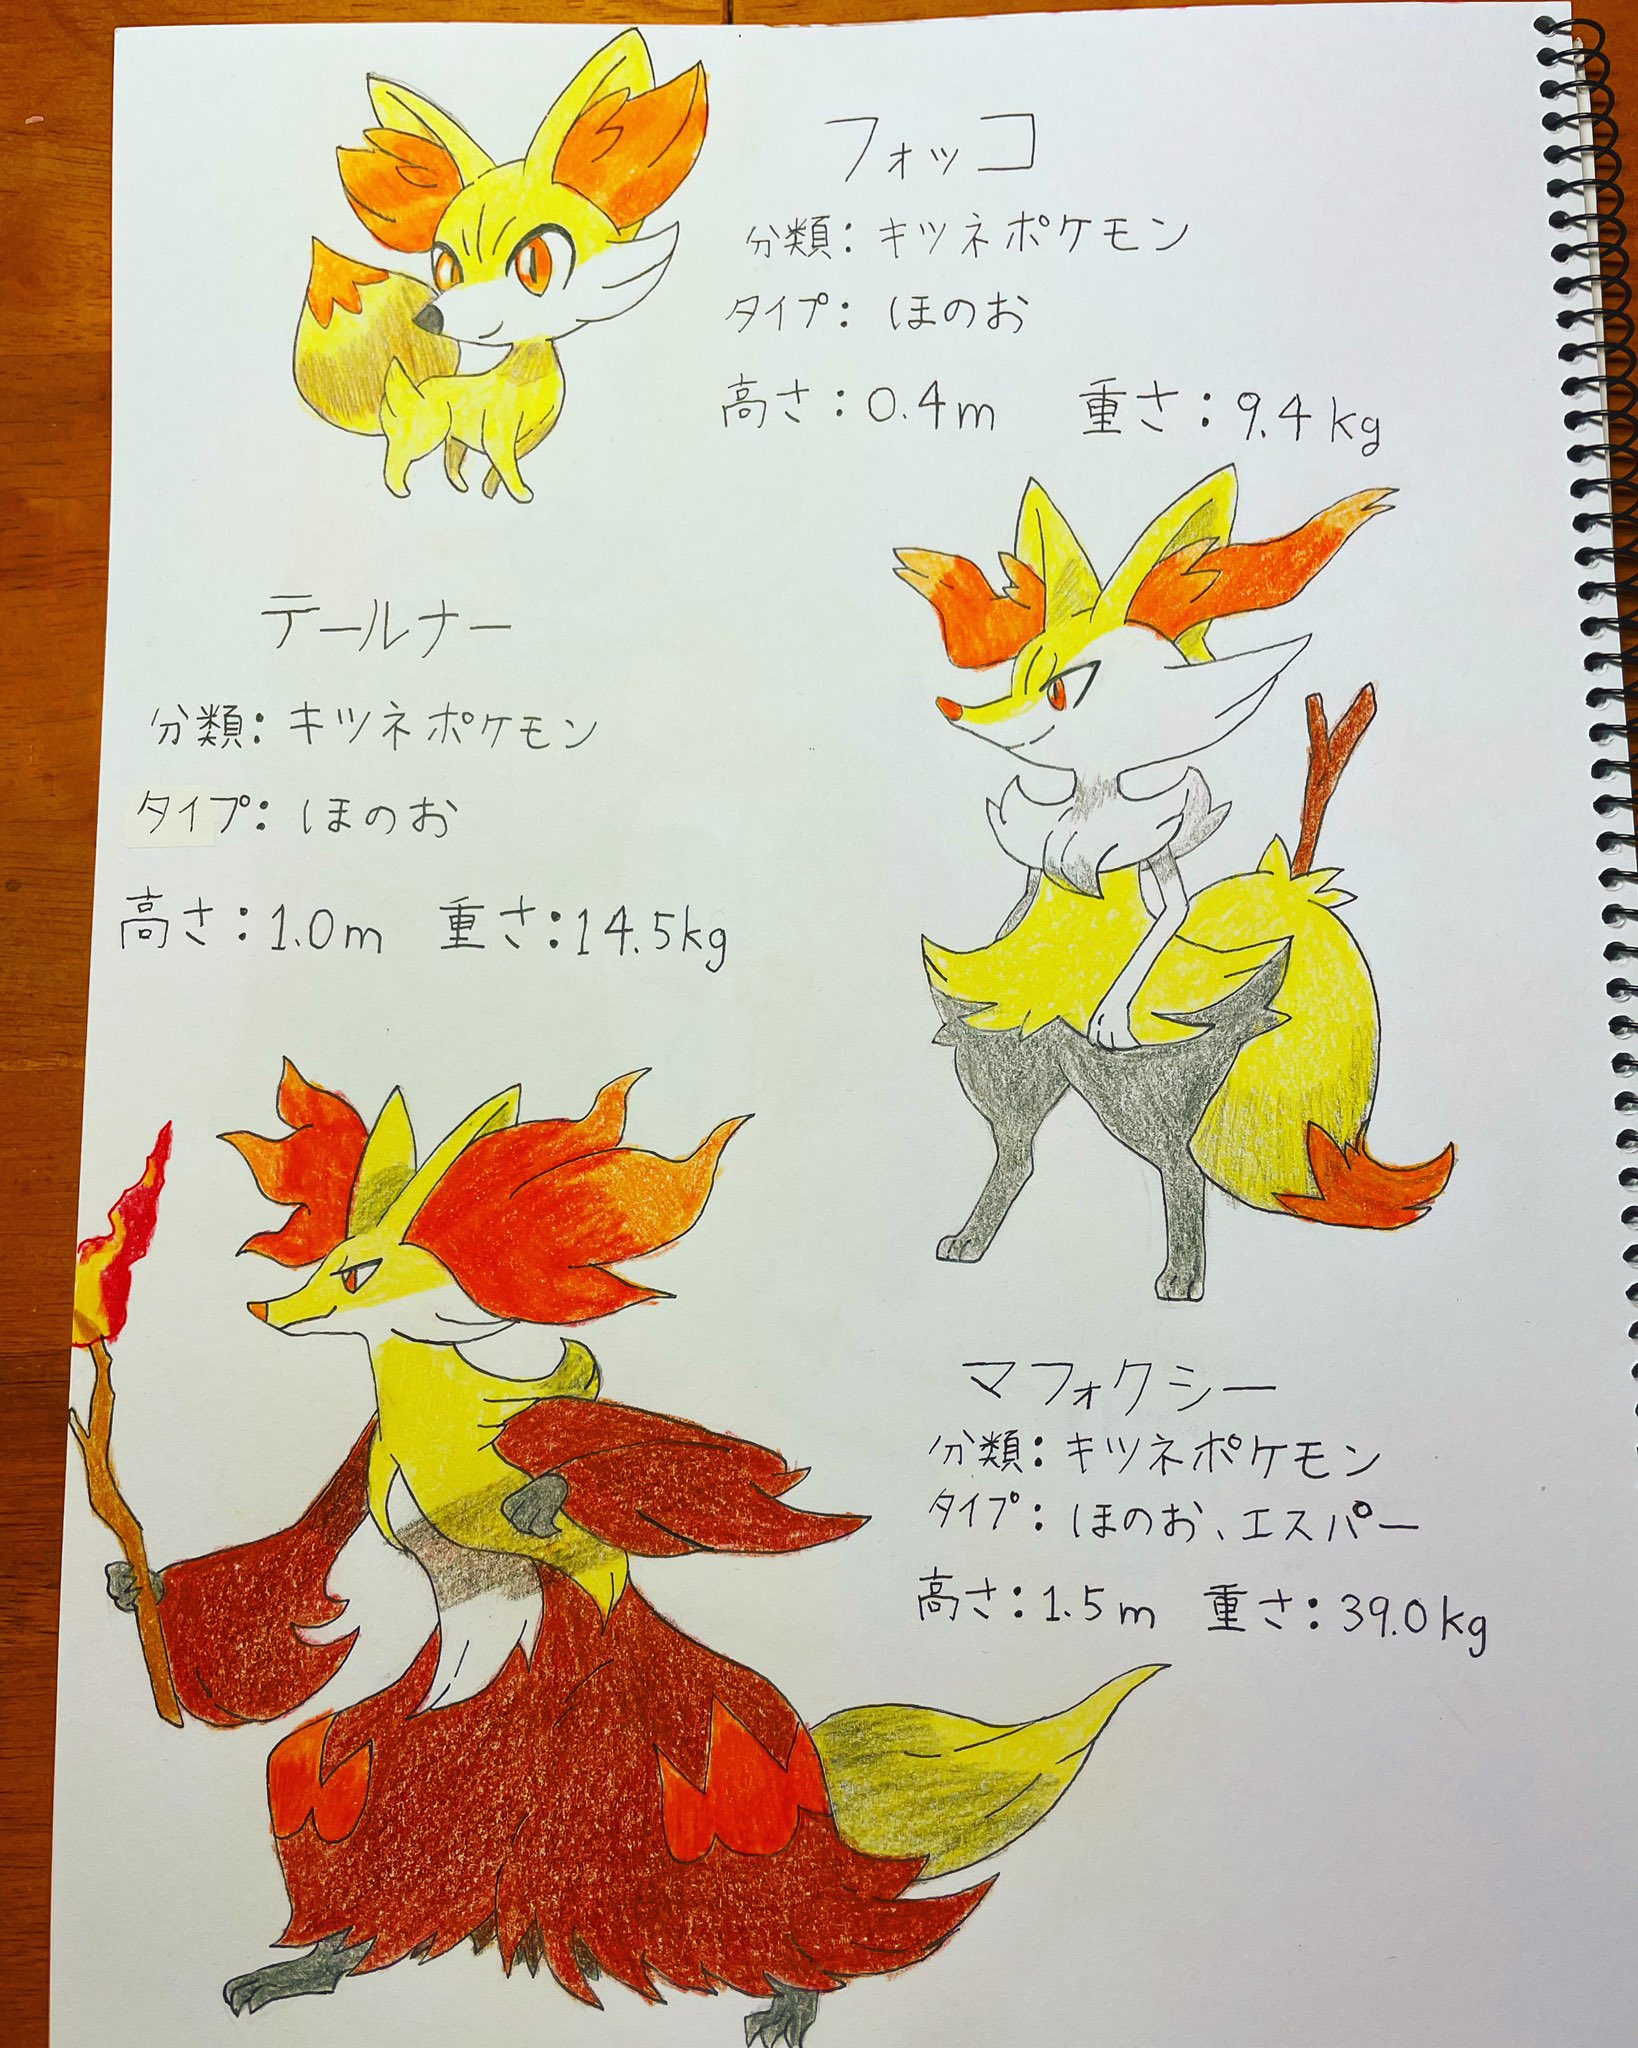 フォッコ
分類：キツネポケモン
タイプ：ほのお
高さ：0.4m 重さ：9.4kg
テールナー
分類：キツネポケモン
タイプ：ほのお
高さ：1.0m 重さ：14.5kg
マフォクシー
分類：キツネポケモン
タイプ：ほのお、エスパー
高さ：1.5m 重さ：39.0kg